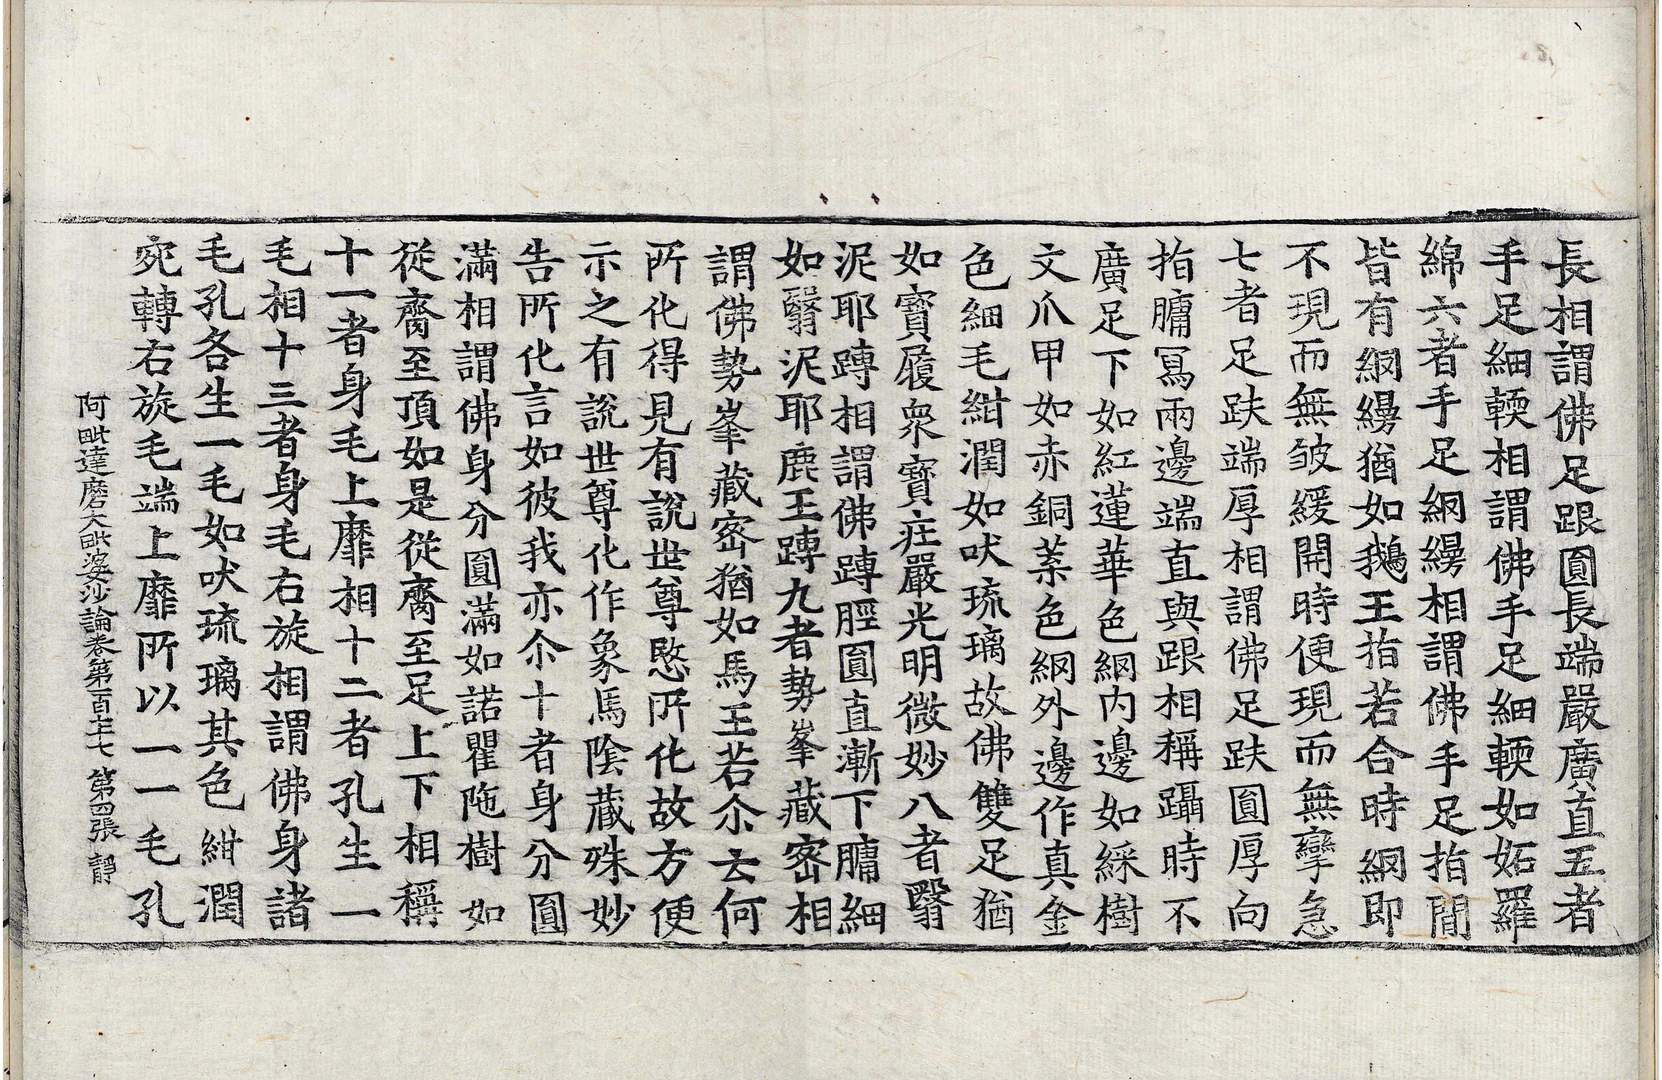 長相謂佛足跟圓長端嚴廣直五者
手足細輭相謂佛手足細輭如妬羅
綿六者手足網縵相謂佛手足指間
皆有網縵猶如鵝王指若合時網即
不現而無皱緩開時便現而無攣急
七者足趺端厚相謂佛足趺圓厚向
指𦟛冩兩邊端直與跟相稱躡時不
廣足下如紅蓮華色網內邊如綵樹
文爪甲如赤銅葉色網外邊作真金
色細毛紺潤如吠琉璃故佛雙足猶
如寶履衆寶莊嚴光明微妙八者翳
泥耶蹲相謂佛蹲脛圓直漸下𦟛細
如翳泥耶鹿王蹲九者勢峯藏密相
謂佛勢峯藏密猶如馬王若尒云何
所化得見有說世尊愍所化故方便
示之有說世尊化作象馬陰藏殊妙
告所化言如彼我亦尒十者身分圓
滿相謂佛身分圓滿如諾瞿陁樹如
從齎至頂如是從齎至足上下相稱
十一者身毛上靡相十二者孔生一
毛相十三者身毛右旋相謂佛身諸
毛孔各生一毛如吠琉璃其色紺潤
宛轉右旋毛端上靡所以一一毛孔
阿毗達磨大毗婆沙論卷第百七十七 第四張 靜